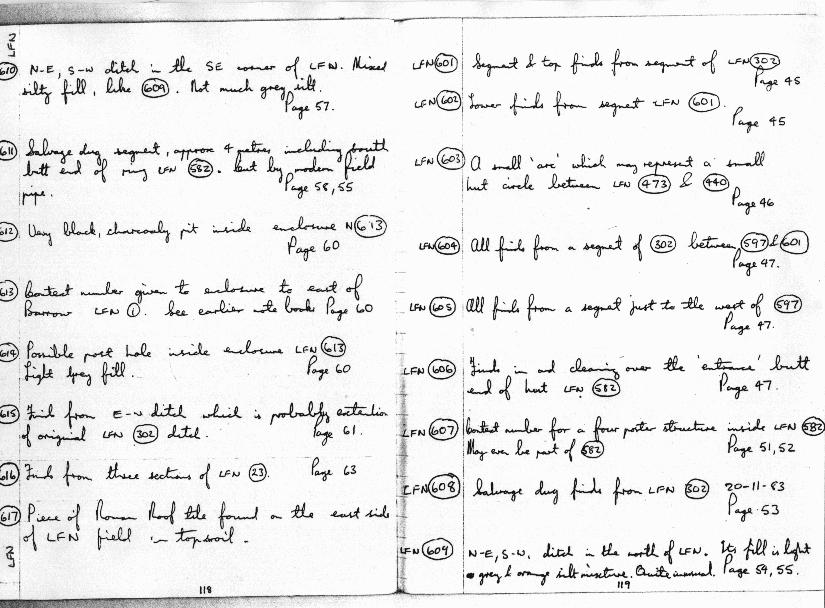 LFN
610 N-E, S-W ditch in the SE corner of LFN. Mixed
silty fill, like 609. Not much grey silt.
Page 57.
611 Salvage dug segment, approx 4 metres including south
butt end of ring LFN 582. Cut by modern field
pipe. Page 58, 55
612 Very black, charcoaly pit inside enclosure N 613
Page 60
613 Context number given to enclosure to east of
Barrow LFN 1. See earlier note books Page 60
614 Possible post hole inside enclosure LFN 613
Light grey fill. Page 60
615 Finds from E-W ditch which is probably extention
of original LFN 302 ditch. Page 61.
616 Finds from three sections of LFN 23. Page 63
617 Piece of Roman Roof tile found on the east side
of LFN field in topsoil.
LFN
118
LFN 601 Segment & top finds from segment of LFN 302
Page 45
LFN 602 Lower finds from segment LFN 601.
Page 45
LFN 603 A small 'arc' which may represent a small
hut circle between LFN 473 & 440
Page 46
LFN 604 All finds from a segment of 302 between 597 & 601
Page 47.
LFN 605 All finds from a segment just to the west of 597
Page 47.
LFN 606 Finds in and cleaning over the 'entrance' butt
end of hut LFN 582 Page 47.
LFN 607 Context number for a four poster structure inside LFN 582
May even be part of 582 Page 51, 52
LFN 608 Salvage dug finds from LFN 302 20-11-83
Page 53
LFN 609 N-E, S-W, ditch in the north of LFN. Its fill is light
grey & orange silt mixture. Quite unusual. Page 54, 55.
119